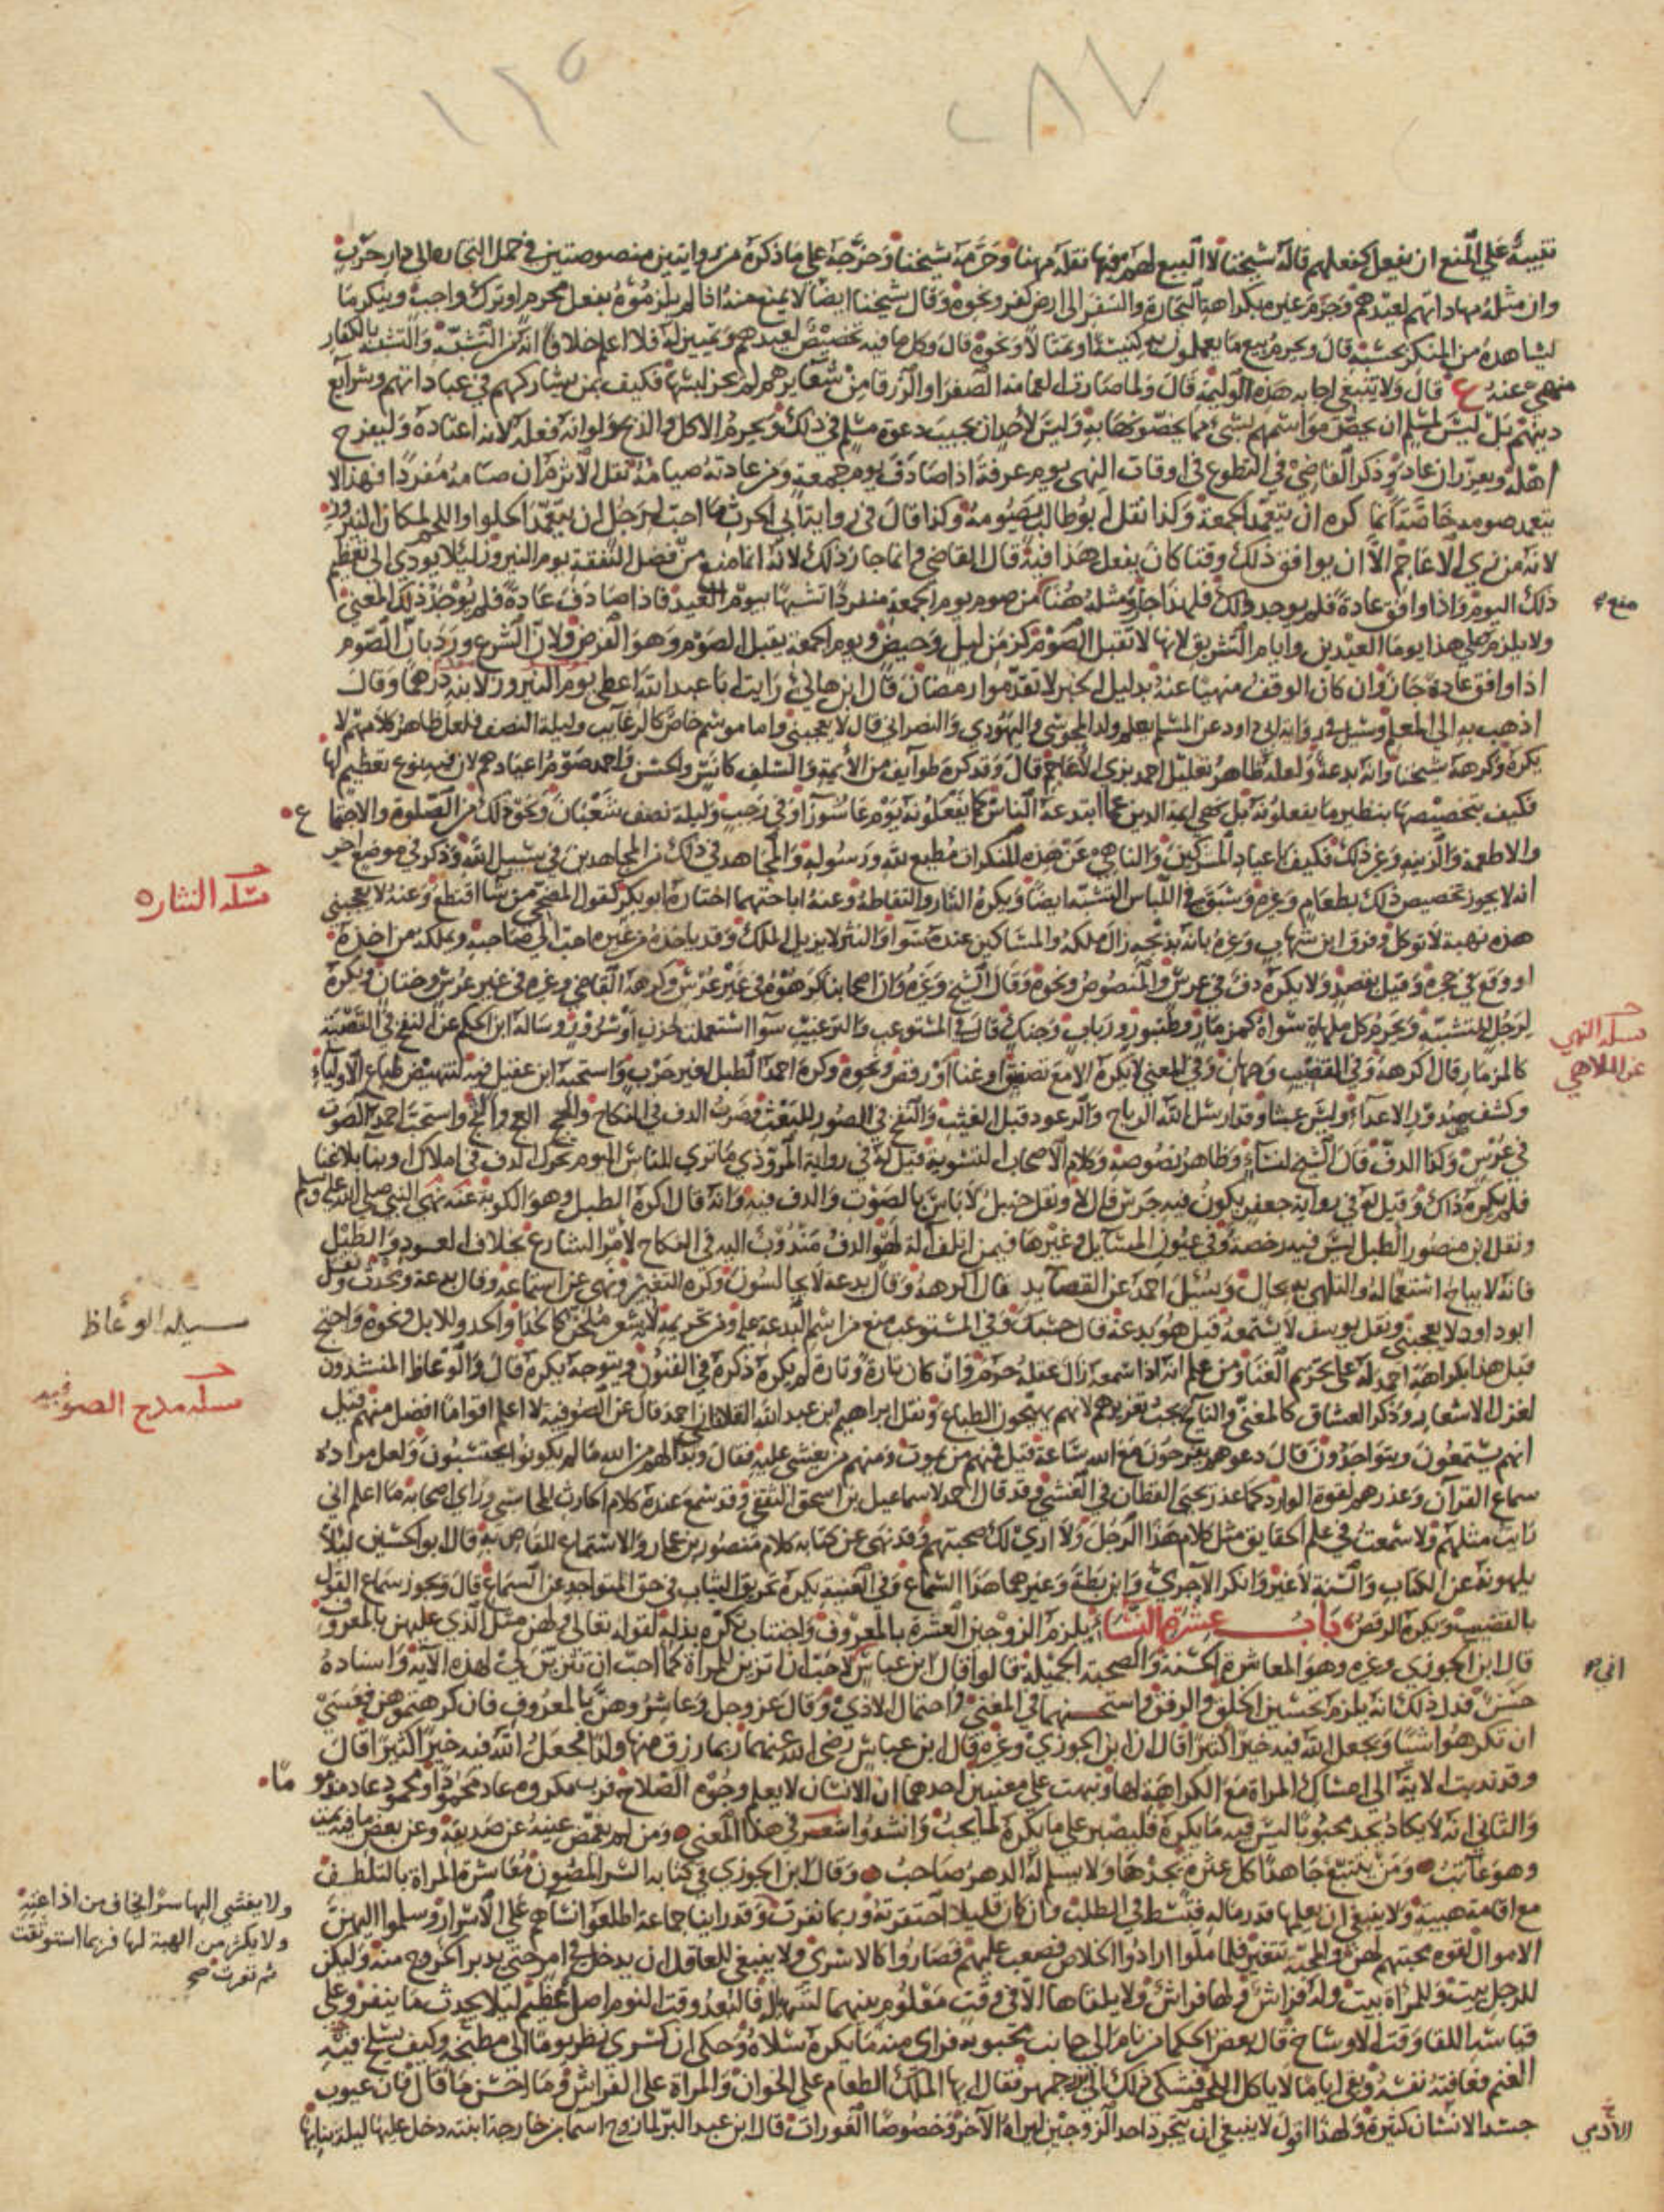 ١٢٥
٢٨٧
تنبيه على المنع ان نفعل كفعلهم قاله شيخنا لا البيع لهم فيها نقله مهنا وحرمه شيخنا وخرجه على ما ذكره من روايتين منصوصتين في حمل التجارة الى دار حرب
وان مثله مهاداتهم لعيدهم وجزم غيره بكراهة التجارة والسفر الى ارض كفر ونحوه وقال شيخنا ايضا لا يمنع منه اذا لم يلزموه بفعل محرم او ترك واجب وينكر ما
يشاهده من المنكر بحسبه قال ويحرم بيع ما يعملون به كنيسة او تمثالا ونحوه قال وكل ما فيه تخصيص لعيدهم وتمييز له فلا اعلم خلافا انه من التشبه والتشبه بالكفار
منهي عنه ع قال ولا ينبغي اجابة هذه الوليمة قال ولما صارت العمامة الصفراء او الزرقا من شعايرهم لم يجز لبسها فكيف بمن يشاركهم في عباداتهم وشرايع
دينهم بل ليس لمسلم ان يخص مواسمهم بشيء مما يخصونها به وليس لأحد ان يجيب دعوة مسلم في ذلك ويحرم الاكل والذبح ولو انه فعله لانه اعتاده وليفرح
اهله ويعزر ان عاد وذكر القاضي في التطوع في اوقات النهي يوم عرفة اذا صادف يوم جمعة ومن عادته صيامه نقل الاثرم ان صامه مفردا فهذا لا
يتعمد صومه خاصة انما كره ان يتعمد الجمعة وكذا نقل ابو طالب يصومه وكذا قال في رواية ابي الحرث ما احب لرجل ان يتعمد الحلوا واللحم لمكان النيروز
لانه من زي الاعاجم الا ان يوافق ذلك وقتا كان يفعل هذا فيه قال القاضي وانما جاز ذلك لانه انما منع من فضل النفقة يوم النيروز ليلا يودي الى تعظيم
ذلك اليوم واذا وافق عادة فلم يوجد ذلك فلهذا جاز ومثله هنا من صوم يوم الجمعة منفردا تشبيها بيوم العيد فاذا صادف عادة فلم يوجد ذلك المعنى
منع
ولا يلزم على هذا يوما العيدين وايام التشريق لانها لا تقبل الصوم كزمن ليل وحيض ويوم الجمعة يقبل الصوم وهو الفرض ولان الشرع ورد بان الصوم
اذا وافق عادة جاز وان كان الوقت منهيا عنه بدليل الخبر لا تقدموا رمضان قال ابن هاني رايت ابا عبد الله اعطى يوم النيروز لابنه درهما وقال
اذهب به الى المعلم وسيل في رواية ابي داود عن المسلم يعلم ولد المجوسي واليهودي والنصراني قال لا يعجبني واما موسم خاص كالرغايب وليلة النصف فلعل ظاهر كلامهم لا
يكره وكرهه شيخنا وانه بدعة ولعله ظاهر تعليل احمد بزي الاعاجم قال وقد كره طوايف من الأيمة والسلف كانس والحسن واحمد صوم اعيادهم لان فيه نوع تعظيم لها
فكيف بتخصيصها بنظير ما يفعلونه بل نهى ايمة الدين عما ابتدعه الناس كما يفعلونه يوم عاشورآ او في رجب وليلة نصف شعبان ونحو ذلك من الصلوة والاجتماع
والاطعمة والزينة وغير ذلك فكيف باعياد المشركين والناهي عن هذه المنكرات مطيع لله ورسوله والمجاهد في ذلك من المجاهدين في سبيل الله وذكر في موضع اخر
انه لا يجوز تخصيص ذلك بطعام وغيره وسبق في اللباس التشبه ايضا ويكره النثار والتقاطه وعنه اباحتهما اختاره ابو بكر كقول المضحي من شا اقتطع وعنه لا يعجبني
مسلة النثار
هذه نهبة لا توكل وفرق ابن شهاب وغيره بانه بذبحه زال ملكه والمساكين عنده سوا والنثر لا يزيل الملك وقد ياخذه من غيره احب الى صاحبه ويملكه من اخذه
او وقع في حجره وقيل بقصد ولا يكره دف في عرس والمنصوص ونحوه وقال الشيخ وغيره وان اصحابنا كرهوه في غير عرس وكرهه القاضي وغيره في غير عرس وختان ويكره
لرجل للتشبه ويحرم كل ملهاة سواه كمزمار وطنبور ورباب وجنك قال في المستوعب والترغيب سوا استعملت لحزن او سرور وساله ابن الحكم عن النفخ في القصبة
مسلة النهي
عن الملاهي
كالمزمار قال اكرهه وفي القضيب وجهان وفي المغني لا يكره الا مع تصفيق او غنا او رقص ونحوه وكره احمد الطبل لغير حرب واستحبه ابن عقيل فيه لتنهيض طباع الأولياء
وكشف صدور الاعداء وليس عبثا وقد ارسل الله الرياح والرعود قبل الغيث والنفخ في الصور للبعث وضرب الدف في النكاح والحج العج والثج واستحب احمد الصوت
في عرس وكذا الدف قال الشيخ لنساء وظاهر نصوصه وكلام الأصحاب التسوية قيل له في رواية المروذي ما ترى للناس اليوم تحرك الدف في املاك او بنا بلا غنا
فلم يكره ذاك وقيل له في رواية جعفر يكون فيه جرس قال لا ونقل حنبل لا باس بالصوت والدف فيه وانه قال اكره الطبل وهو الكوبة عنه نهى النبي صلى الله عليه وسلم
ونقل ابن منصور الطبل ليس فيه رخصة وفي عيون المسايل وغيرها فيمن اتلف آلة لهو الدف مندوب اليه في النكاح لأمر الشارع بخلاف العود والطبل
فانه لا يباح استعماله والتلهي به بحال وسئل احمد عن القصائد قال اكرهه وقال بدعة لا يجالسون وكره التغبير ونهى عن استماعه وقال بدعة ومحدث ونقل
ابو داود لا يعجبني ونقل يوسف لا يستمعه قيل هو بدعة قال حسبك وفي المستوعب منع من اسم البدعة عليه ومن تحريمه لانه شعر ملحن كالحدا والحدو للابل ونحوه واحتج
مسلة الوعاظ
قبل هذا بكراهة احمد له على تحريم الغنا ومن علم انه اذا سمعه زال عقله حرم وان كان تارة وتارة لم يكره ذكره في الفنون ويتوجه يكره قال والوعاظ المنشدون
لغزل الاشعار وذكر العشاق كالمغني والنايح يجب تعزيرهم لانهم يهيجون الطباع ونقل ابراهيم بن عبد الله القلانسي ان احمد قال عن الصوفية لا اعلم اقواما افضل منهم قيل
مسلة مدح الصوفية
انهم يستمعون ويتواجدون قال دعوهم يفرحون مع الله ساعة قيل فمنهم من يموت ومنهم من يغشى عليه فقال وبدا لهم من الله ما لم يكونوا يحتسبون ولعل مراده
سماع القرآن وعذرهم لقوة الوارد كما عذر يحيى القطان في الغشي وقد قال احمد لاسماعيل بن اسحق الثقفي وقد سمع عنده كلام الحارث المحاسبي وراى اصحابه ما اعلم اني
رايت مثلهم ولا سمعت في علم الحقايق مثل كلام هذا الرجل ولا ارى لك صحبتهم وقد نهى عن كتابة كلام منصور بن عمار والاستماع للقاص به قال ابو الحسين ليلا
يلهونه عن الكتاب والسنة لا غير وانكر الآجري وابن بطة وغيرهما هذا السماع وفي الغنية يكره تخريق الثياب في حق المتواجد عن السماع قال ويجوز سماع القول
بالقضيب ويكره الرقص باب عشرة النساء يلزم الزوجين العشرة بالمعروف واجتناب تكره بذله لقوله تعالى ولهن مثل الذي عليهن بالمعروف
قال ابن الجوزي وغيره وهو المعاشرة الحسنة والصحبة الجميلة قالوا قال ابن عباس لاحب ان اتزين للمراة كما احب ان تتزين لي لهذه الآية واسناده
اني
حسن فدل ذلك انه يلزم تحسين الخلق والرفق واستحسنهما في المغني واحتمال الاذى وقال عز وجل وعاشروهن بالمعروف فان كرهتموهن فعسى
ان تكرهوا شيئا ويجعل الله فيه خيرا كثيرا قال ابن الجوزي وغيره قال ابن عباس رضي الله عنهما ربما رزق منها ولدا فجعل الله فيه خيرا كثيرا قال
وقد ندبت الاية الى امساك المراة مع الكراهة لها ونبهت على معنيين احدهما ان الانسان لا يعلم وجوه الصلاح فرب مكروه عاد محمودا ومحمود عاد مذموما
والثاني انه لا يكاد يجد محبوبا ليس فيه ما يكره فليصبر على ما يكره لما يحب وانشدوا في هذا المعنى ومن لم يغمض عينه عن صديقه وعن بعض ما فيه يمت
وهو عاتب ومن يتتبع جاهدا كل عثرة يجدها ولا يسلم له الدهر صاحب وقال ابن الجوزي في كتابه السر المصون معاشرة المراة بالتلطف
مع اقامة هيبة ولا ينبغي ان يعلمها قدر ماله فتنبسط في الطلب وان كان قليلا احتقرته وربما نفرت وقد راينا جماعة اطلعوا نساهم على الاسرار وسلموا اليهن
ولا يفشي اليها سرا يخاف من اذاعته
ولا يكثر من الهبة لها فربما استوثقت
ثم نفرت صح
الاموال لقوة محبتهم لهن والمحبة تتغير فلما ملوا ارادوا الخلاص فصعب عليهم فصاروا كالاسرى ولا ينبغي للعاقل ان يدخل في امر حتى يدبر الخروج منه وليكن
للرجل بيت وللمراة بيت وله فراش ولها فراش ولا يلقاها الا في وقت معلوم بينهما لتتهيا له فالبعد وقت النوم اصل عظيم ليلا يحدث ما ينفر وعلى
قياسه اللقا وقت الاوساخ قال بعض الحكما من نام الى جانب محبوبه فراى منه ما يكره سلاه وحكي ان كسرى نظر يوما الى مطبخه وكيف يسلخ فيه
الغنم فعافته نفسه وبقي اياما لا ياكل اللحم فشكى ذلك الى بزرجمهر فقال ايها الملك الطعام على الخوان والمراة على الفراش وما احسن ما قال فان عيوب
جسد الانسان كثيرة ولهذا اقول لا ينبغي ان يتجرد احد الزوجين ليراه الآخر وخصوصا العورات قال ابن عبد البر لما زوج اسما بن خارجة ابنته دخل عليها ليلة بنايها
الادمي